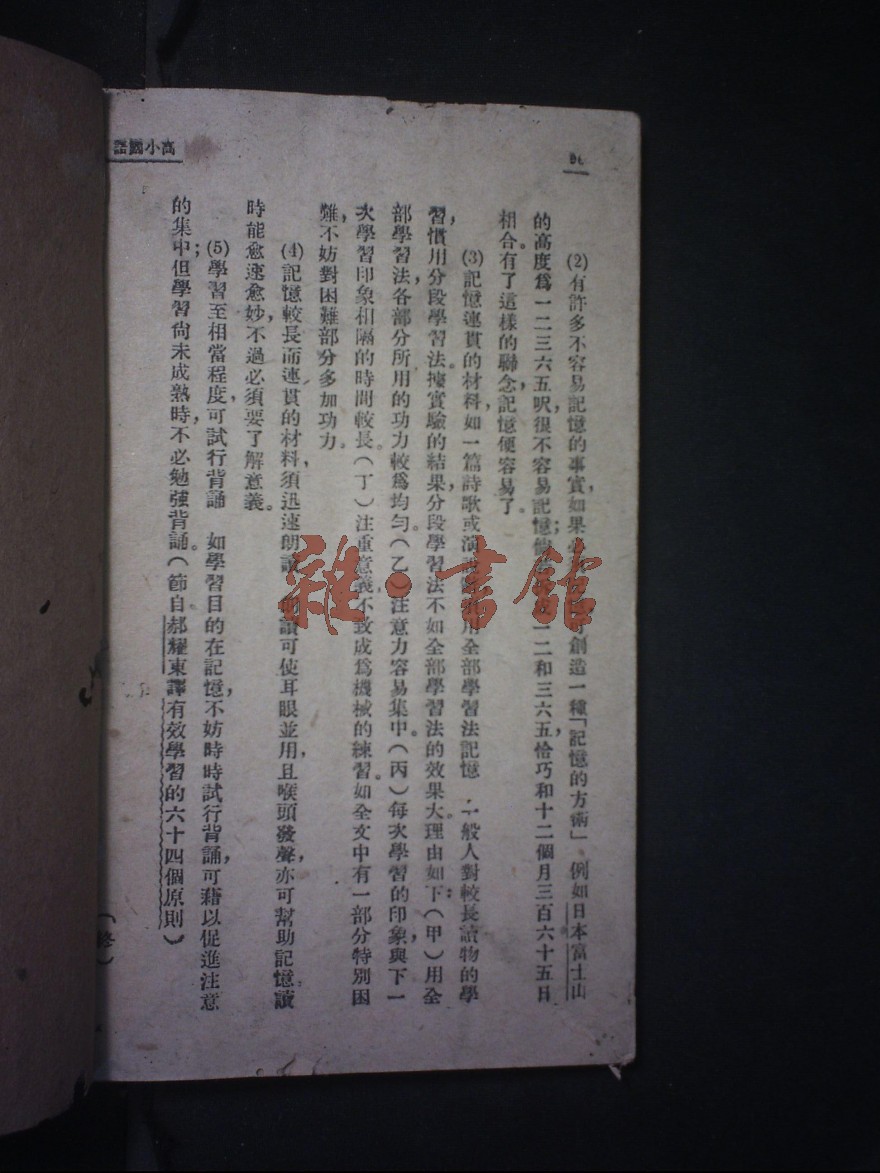 高小國語
(2)有許多不容易記憶的事實，如果
創造一種「記憶的方術」 例如日本富士山
的高度爲一二三六五呎，很不容易記憶；
一二和三六五，恰巧和十二個月三百六十五日
相合。有了這樣的聯念，記憶便容易了。
(3)記憶連貫的材料，如一篇詩歌或演
用全部學習法記憶 一般人對較長讀物的學
習，慣用分段學習法。據實驗的結果，分段學習法不如全部學習法的效果大。理由如下：（甲）用全
部學習法，各部分所用的功力較爲均勻。（乙）注意力容易集中。（丙）每次學習的印象，與下一
次學習印象相隔的時間較長。（丁）注重意義，不致成爲機械的練習。如全文中有一部分特別困
難，不妨對困難部分多加功力。
(4)記憶較長而連貫的材料，須迅速朗讀 朗讀可使耳眼並用，且喉頭發聲，亦可幫助記憶。讀
時能愈速愈妙，不過必須要了解意義。
(5)學習至相當程度，可試行背誦 如學習目的在記憶，不妨時時試行背誦，可藉以促進注意
的集中；但學習尚未成熟時，不必勉強背誦。（節自郝耀東譯有效學習的六十四個原則）
（終）
雜·書館